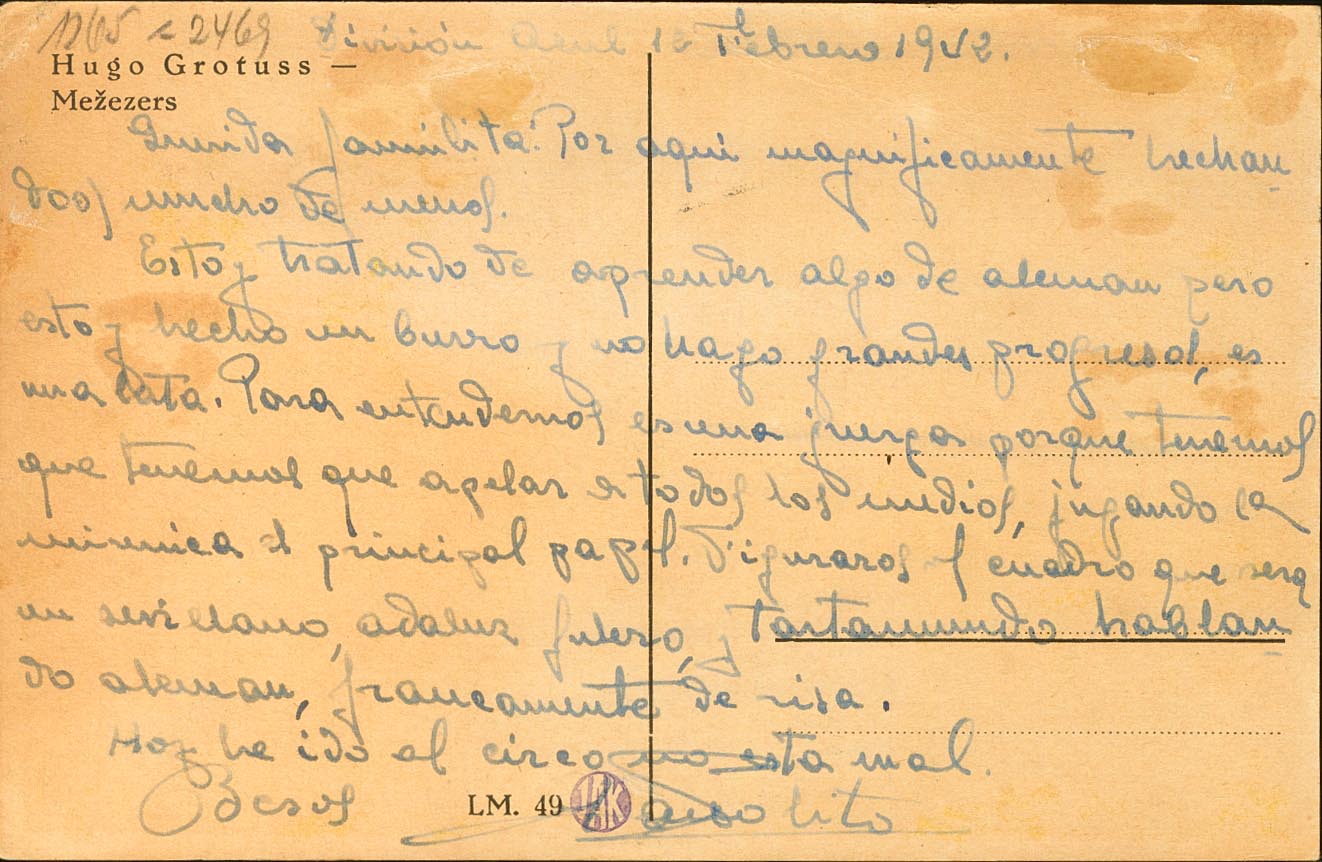 División Azul 12 Febrero 1942.
Hugo Grotuss —
Mežezers
familita: Por aqui magnificamente hechan
doos mucho de menos.
Estoy tratando de aprender algo de aleman pero
estoy hecho un burro y no hago grandes progresos, es
una lata. Para entendernos es una juerga porque tenemos
que tenemos que apelar a todos los medios, jugando la
mimica el principal papel. Figuraros el cuadro que sera
un sevillano, adaluz fulero, y tartamundo hablan
do aleman, francamente de risa.
Hoy he ido al circo no esta mal.
Besos
LM. 49